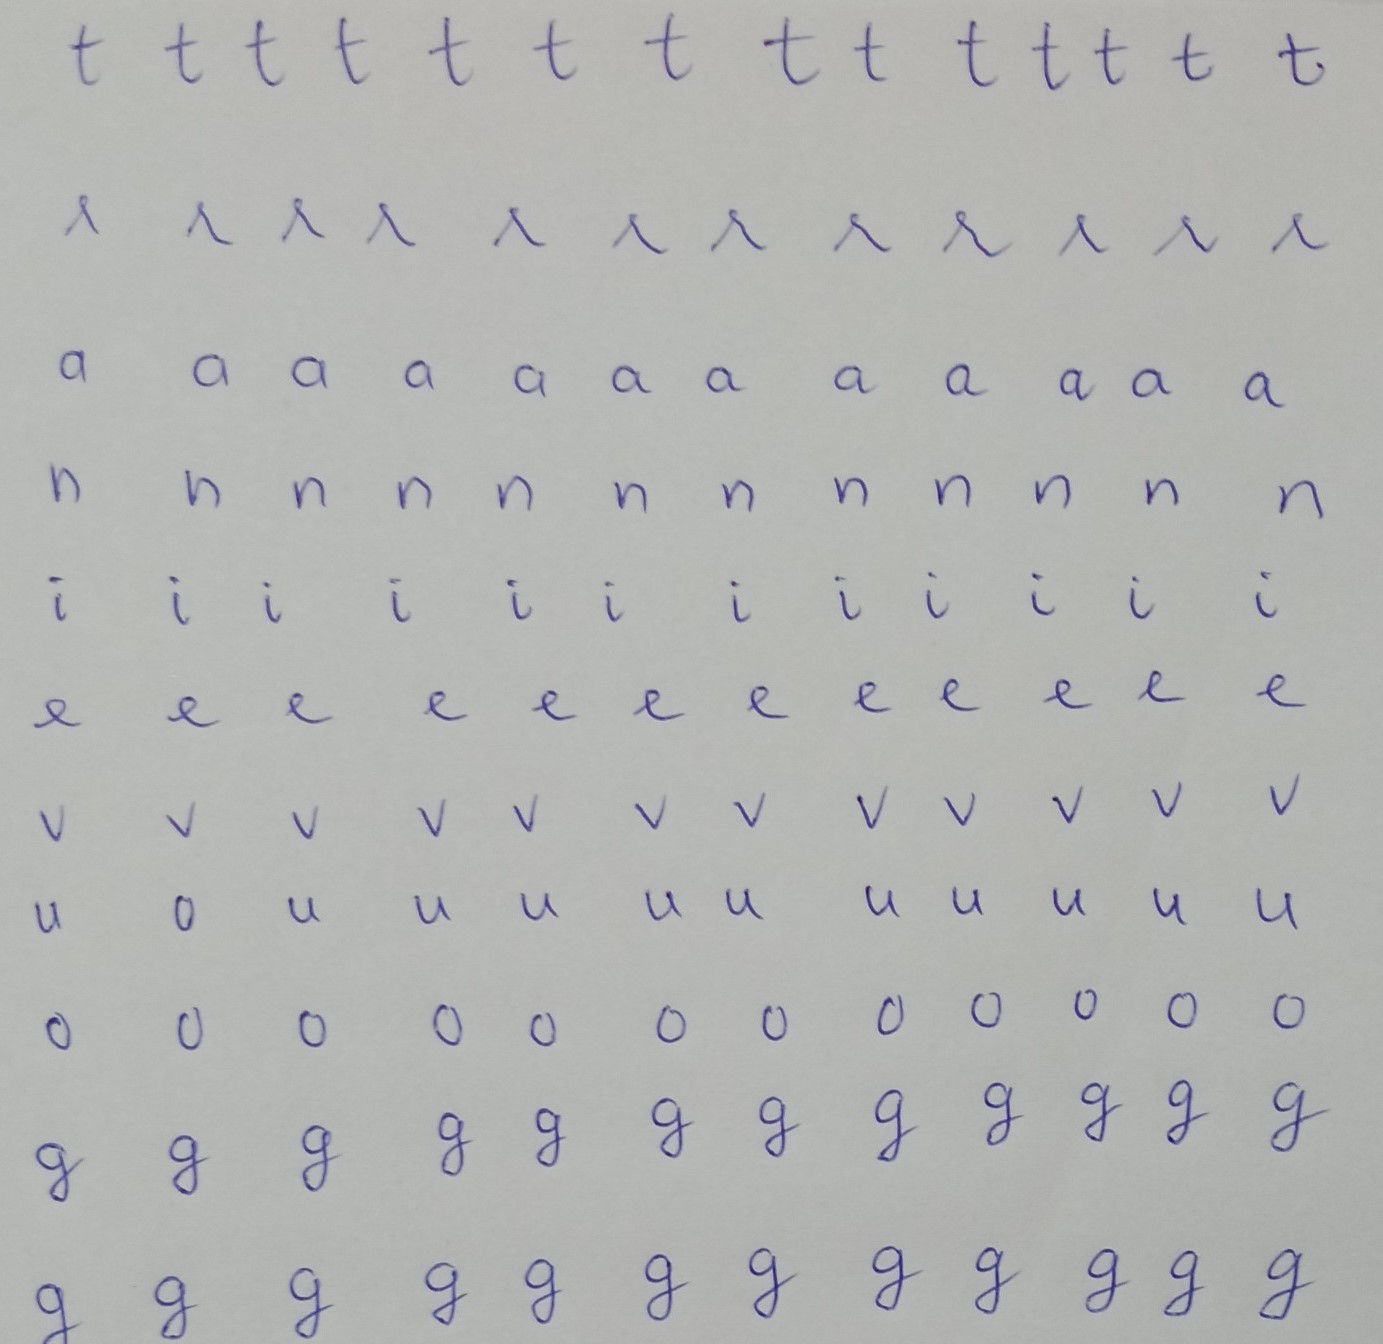 t t t t t t t t t t t t t t
r r r r r r r r r r r r
a a a a a a a a a a a a
n n n n n n n n n n n n
i i i i i i i i i i i i
e e e e e e e e e e e e
v v v v v v v v v v v v
u o u u u u u u u u u u
o o o o o o o o o o o o
g g g g g g g g g g g g
g g g g g g g g g g g g